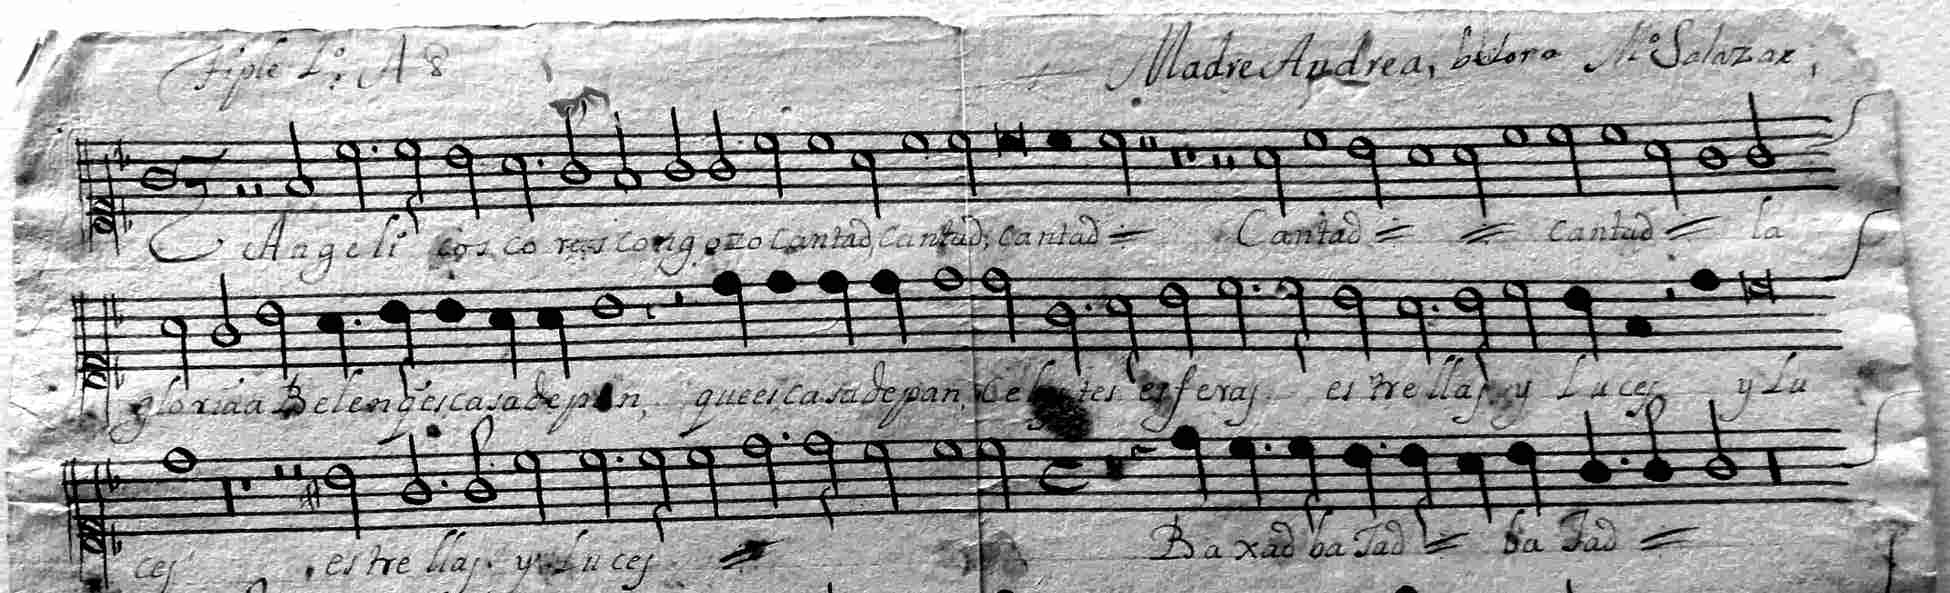 Tiple 1º: A 8
Madre Andrea, Mº Salazar;
Angelicos cores con gozo cantad, cantad, cantad = Cantad = = cantad = la
gloria a Belen q̃ es casa de pan, que es casa de pan, Celestes esferas estrellas y Luces y Lu
ces estrellas y Luces = Baxad baJad = baJad =